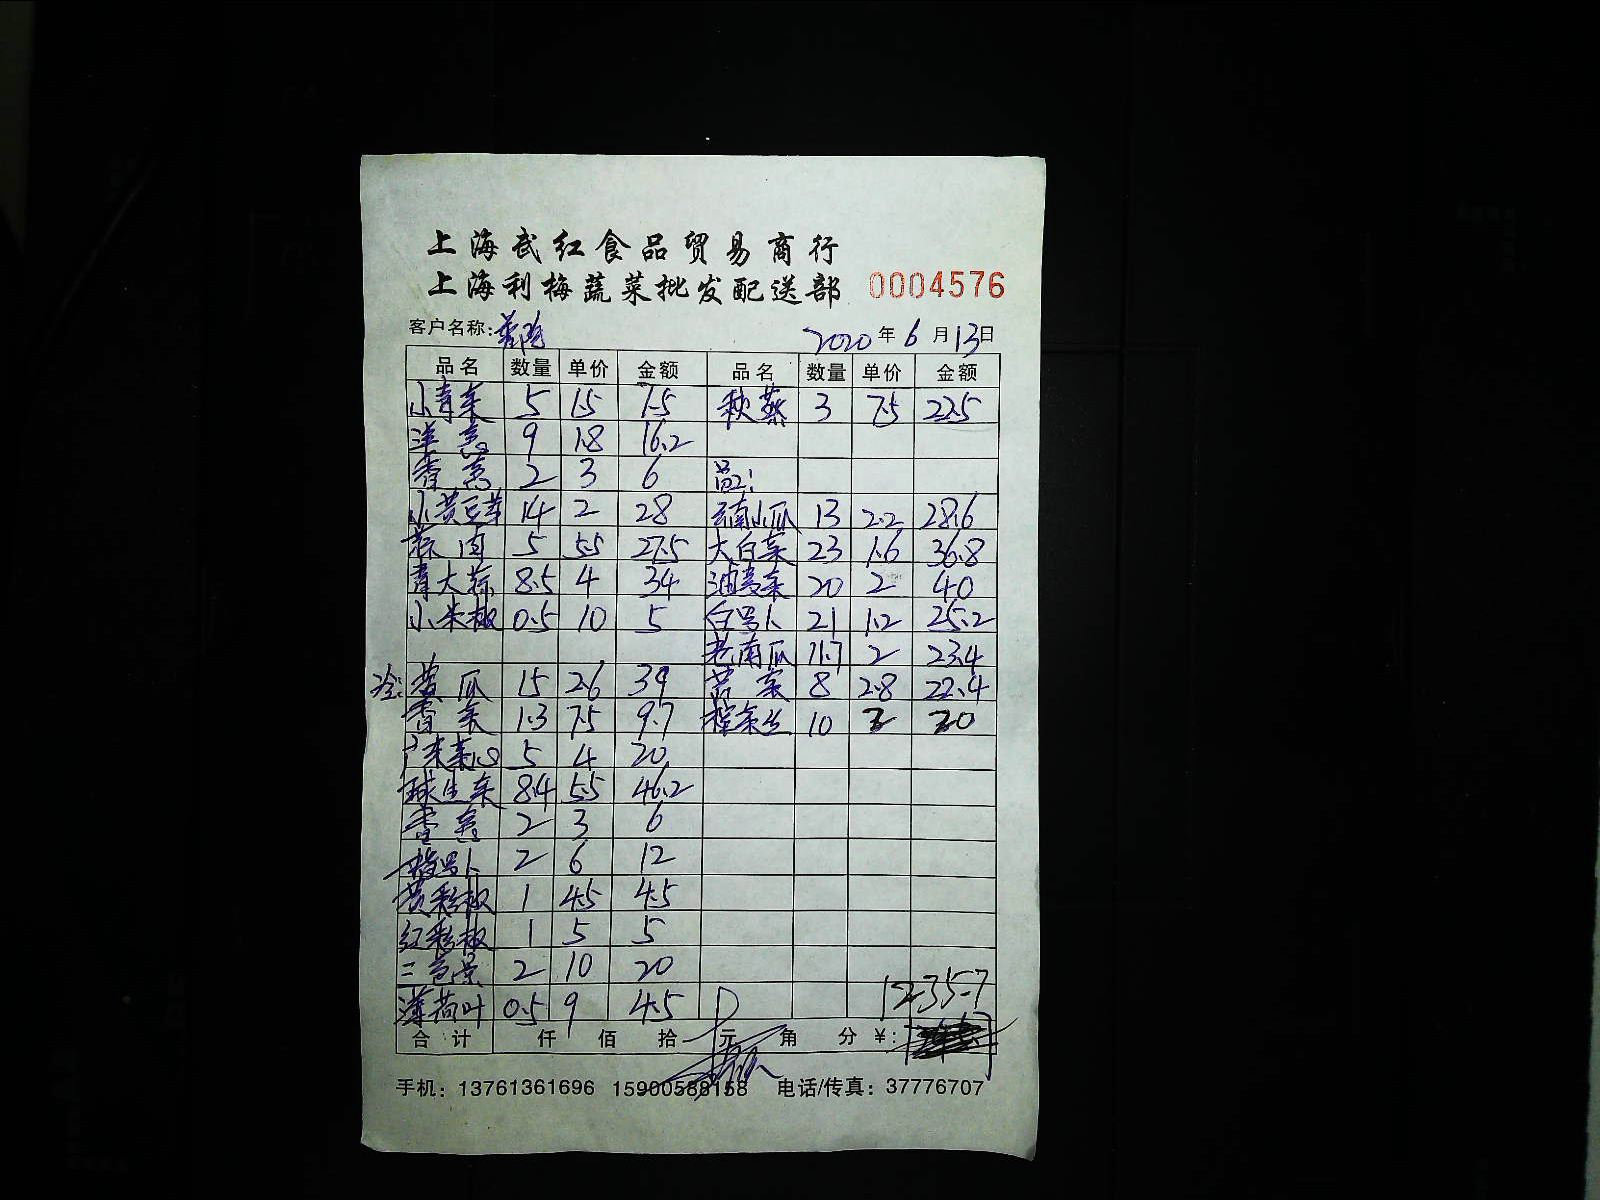 上海武红食品贸易商行
上海利梅蔬菜批发配送部 0004576
客户名称: 2020年6月13日
品名 数量 单价 金额 品名 数量 单价 金额
小青菜 5 1.5 7.5 秋葵 3 7.5 22.5
洋葱 9 1.8 16.2
香葱 2 3 6
小黄豆芽 14 2 28 云南小瓜 13 2.2 28.6
蒜肉 5 5.5 27.5 大白菜 23 1.6 36.8
青大蒜 8.5 4 34 油麦菜 20 2 40
小米椒 0.5 10 5 白萝卜 21 1.2 25.2
老南瓜 11.7 2 23.4
冷: 黄瓜 15 2.6 39 苋菜 8 2.8 22.4
香菜 1.3 7.5 9.7 榨菜丝 10
广东菜心 5 4 20
球生菜 8.4 5.5 46.2
香葱 2 3 6
萝卜 2 6 12
黄彩椒 1 4.5 4.5
红彩椒 1 5 5
三色堇 2 10 20
薄荷叶 0.5 9 4.5 1235.7
合计 仟 佰 拾 元 角 分 ¥:
手机: 13761361696 15900588158 电话/传真: 37776707